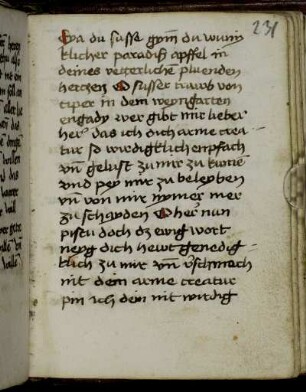 231
Eya du susse gym du wuny
klicher paradiß apffel in
deines veterlichē pluenden
hertzen O susser trawb von
ciper in dem weyngarten
engady wer gibt mir lieber
her das ich dich arme crea
tur so wirdigklich enpfach
vn̄ gelust zu mir zu kumē
vnd pey mir zu beleyben
vn̄ von mir nymer mer
zu schayden O her nun
pistu doch dz ewig wort
neyg dich hewt genedig
klich zu mir vn̄ v̓schmach
nit dein arme creatur
pin ich dein nit wirdig